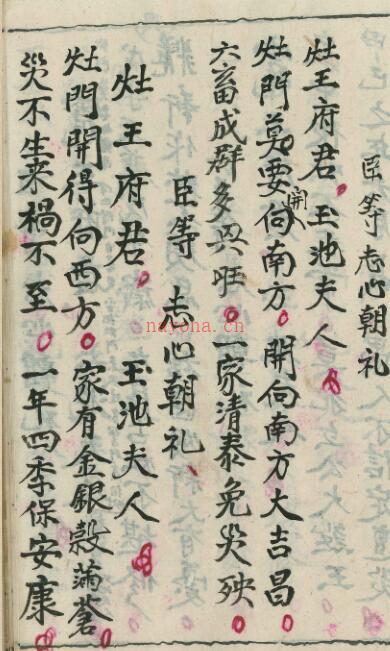 臣等志心朝礼
灶王府君 玉池夫人
灶門莫要開向南方 開向南方大吉昌
六畜成群多兴旺 一家清泰免災殃
臣等 志心朝礼
灶王府君 玉池夫人
灶門開得向西方 家有金銀穀满倉
災不生来禍不至 一年四季保安康
nayona.cn